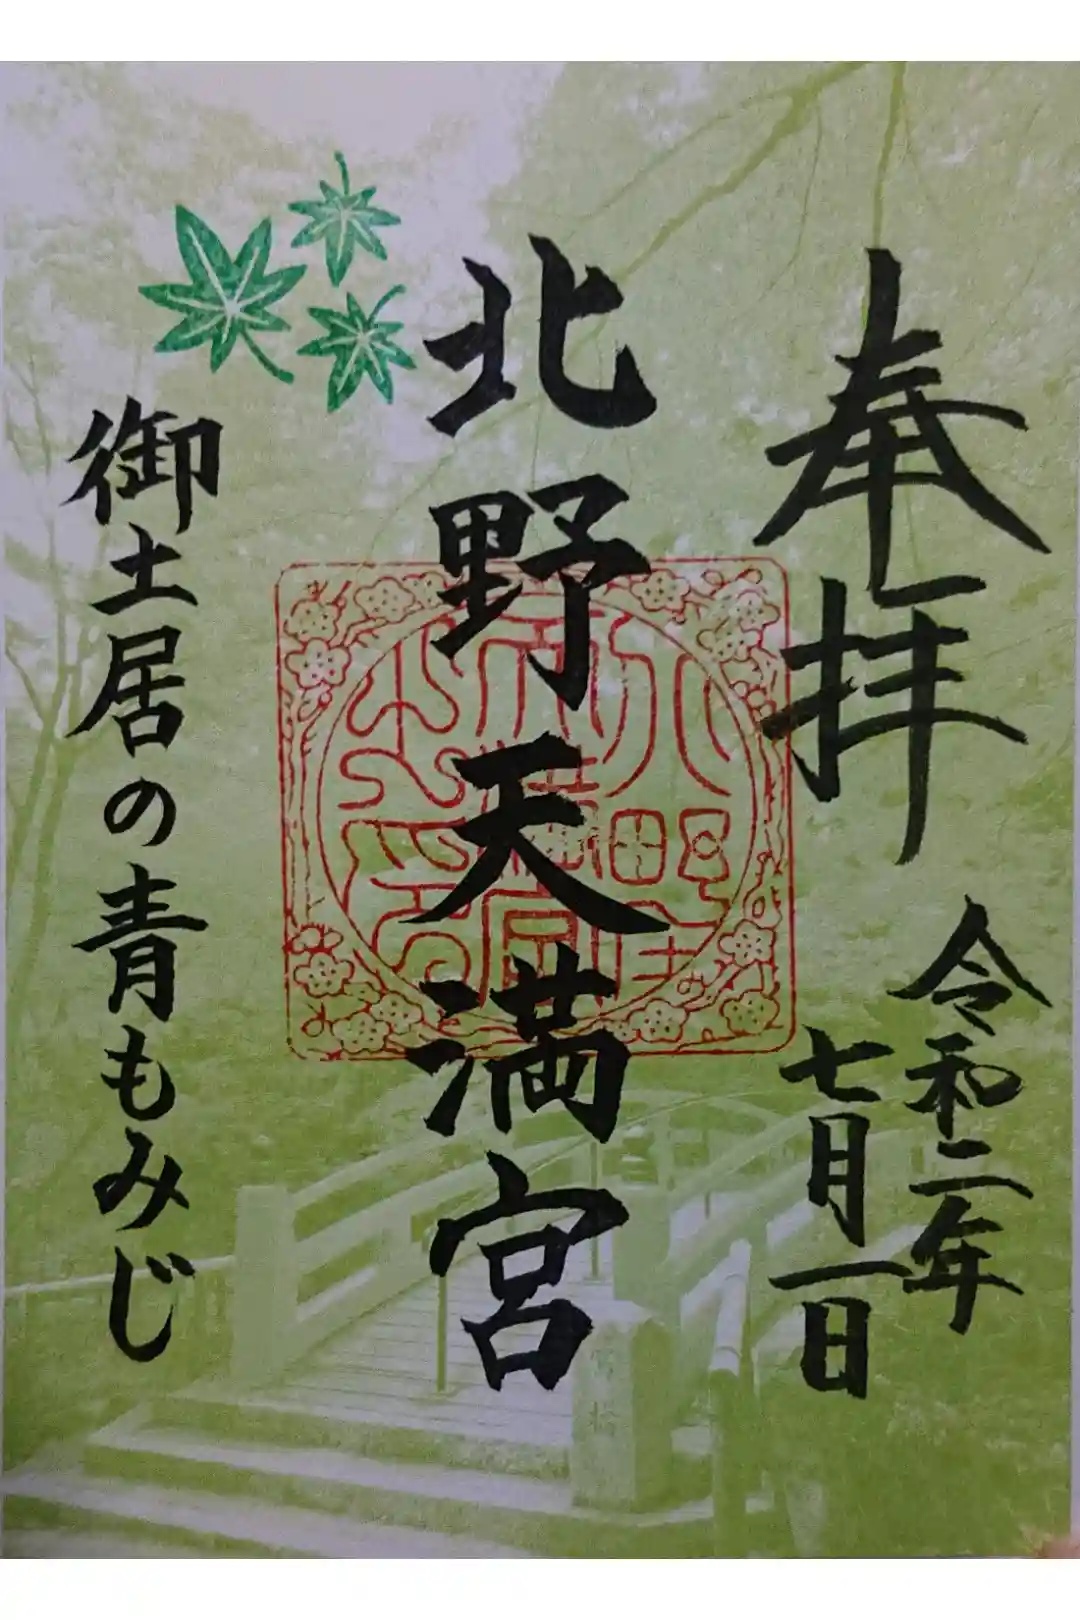 奉拝
令和二年
七月一日
北野天満宮
御土居の青もみじ